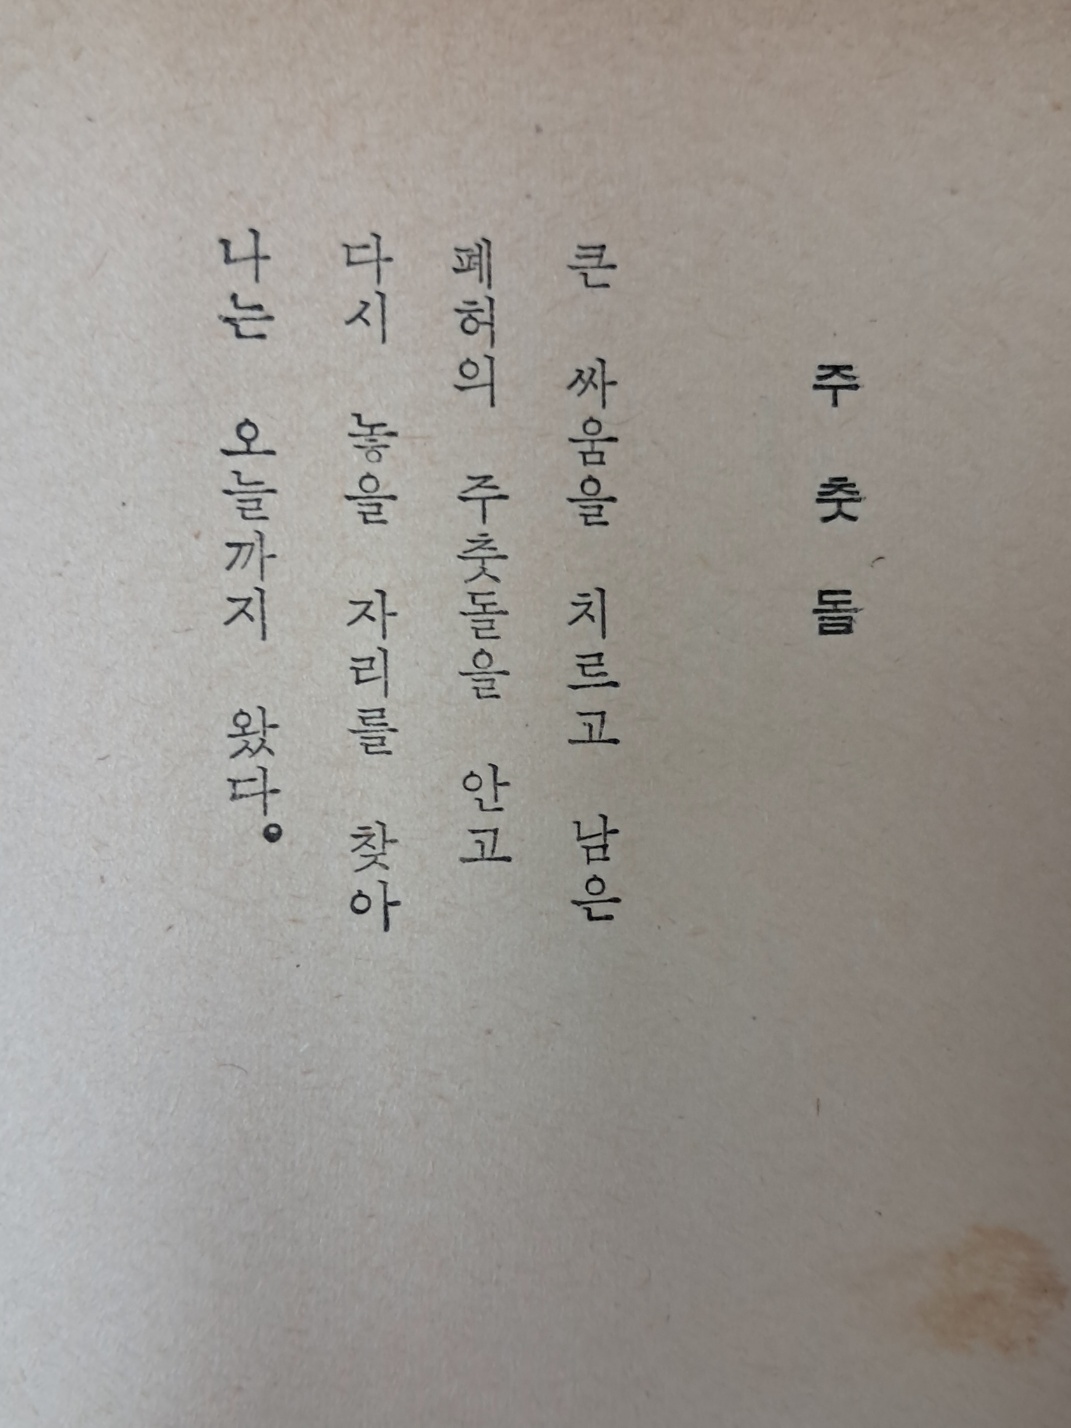 주춧돌
큰 싸움을 치르고 남은
폐허의 주춧돌을 안고
다시 놓을 자리를 찾아
나는 오늘까지 왔다。